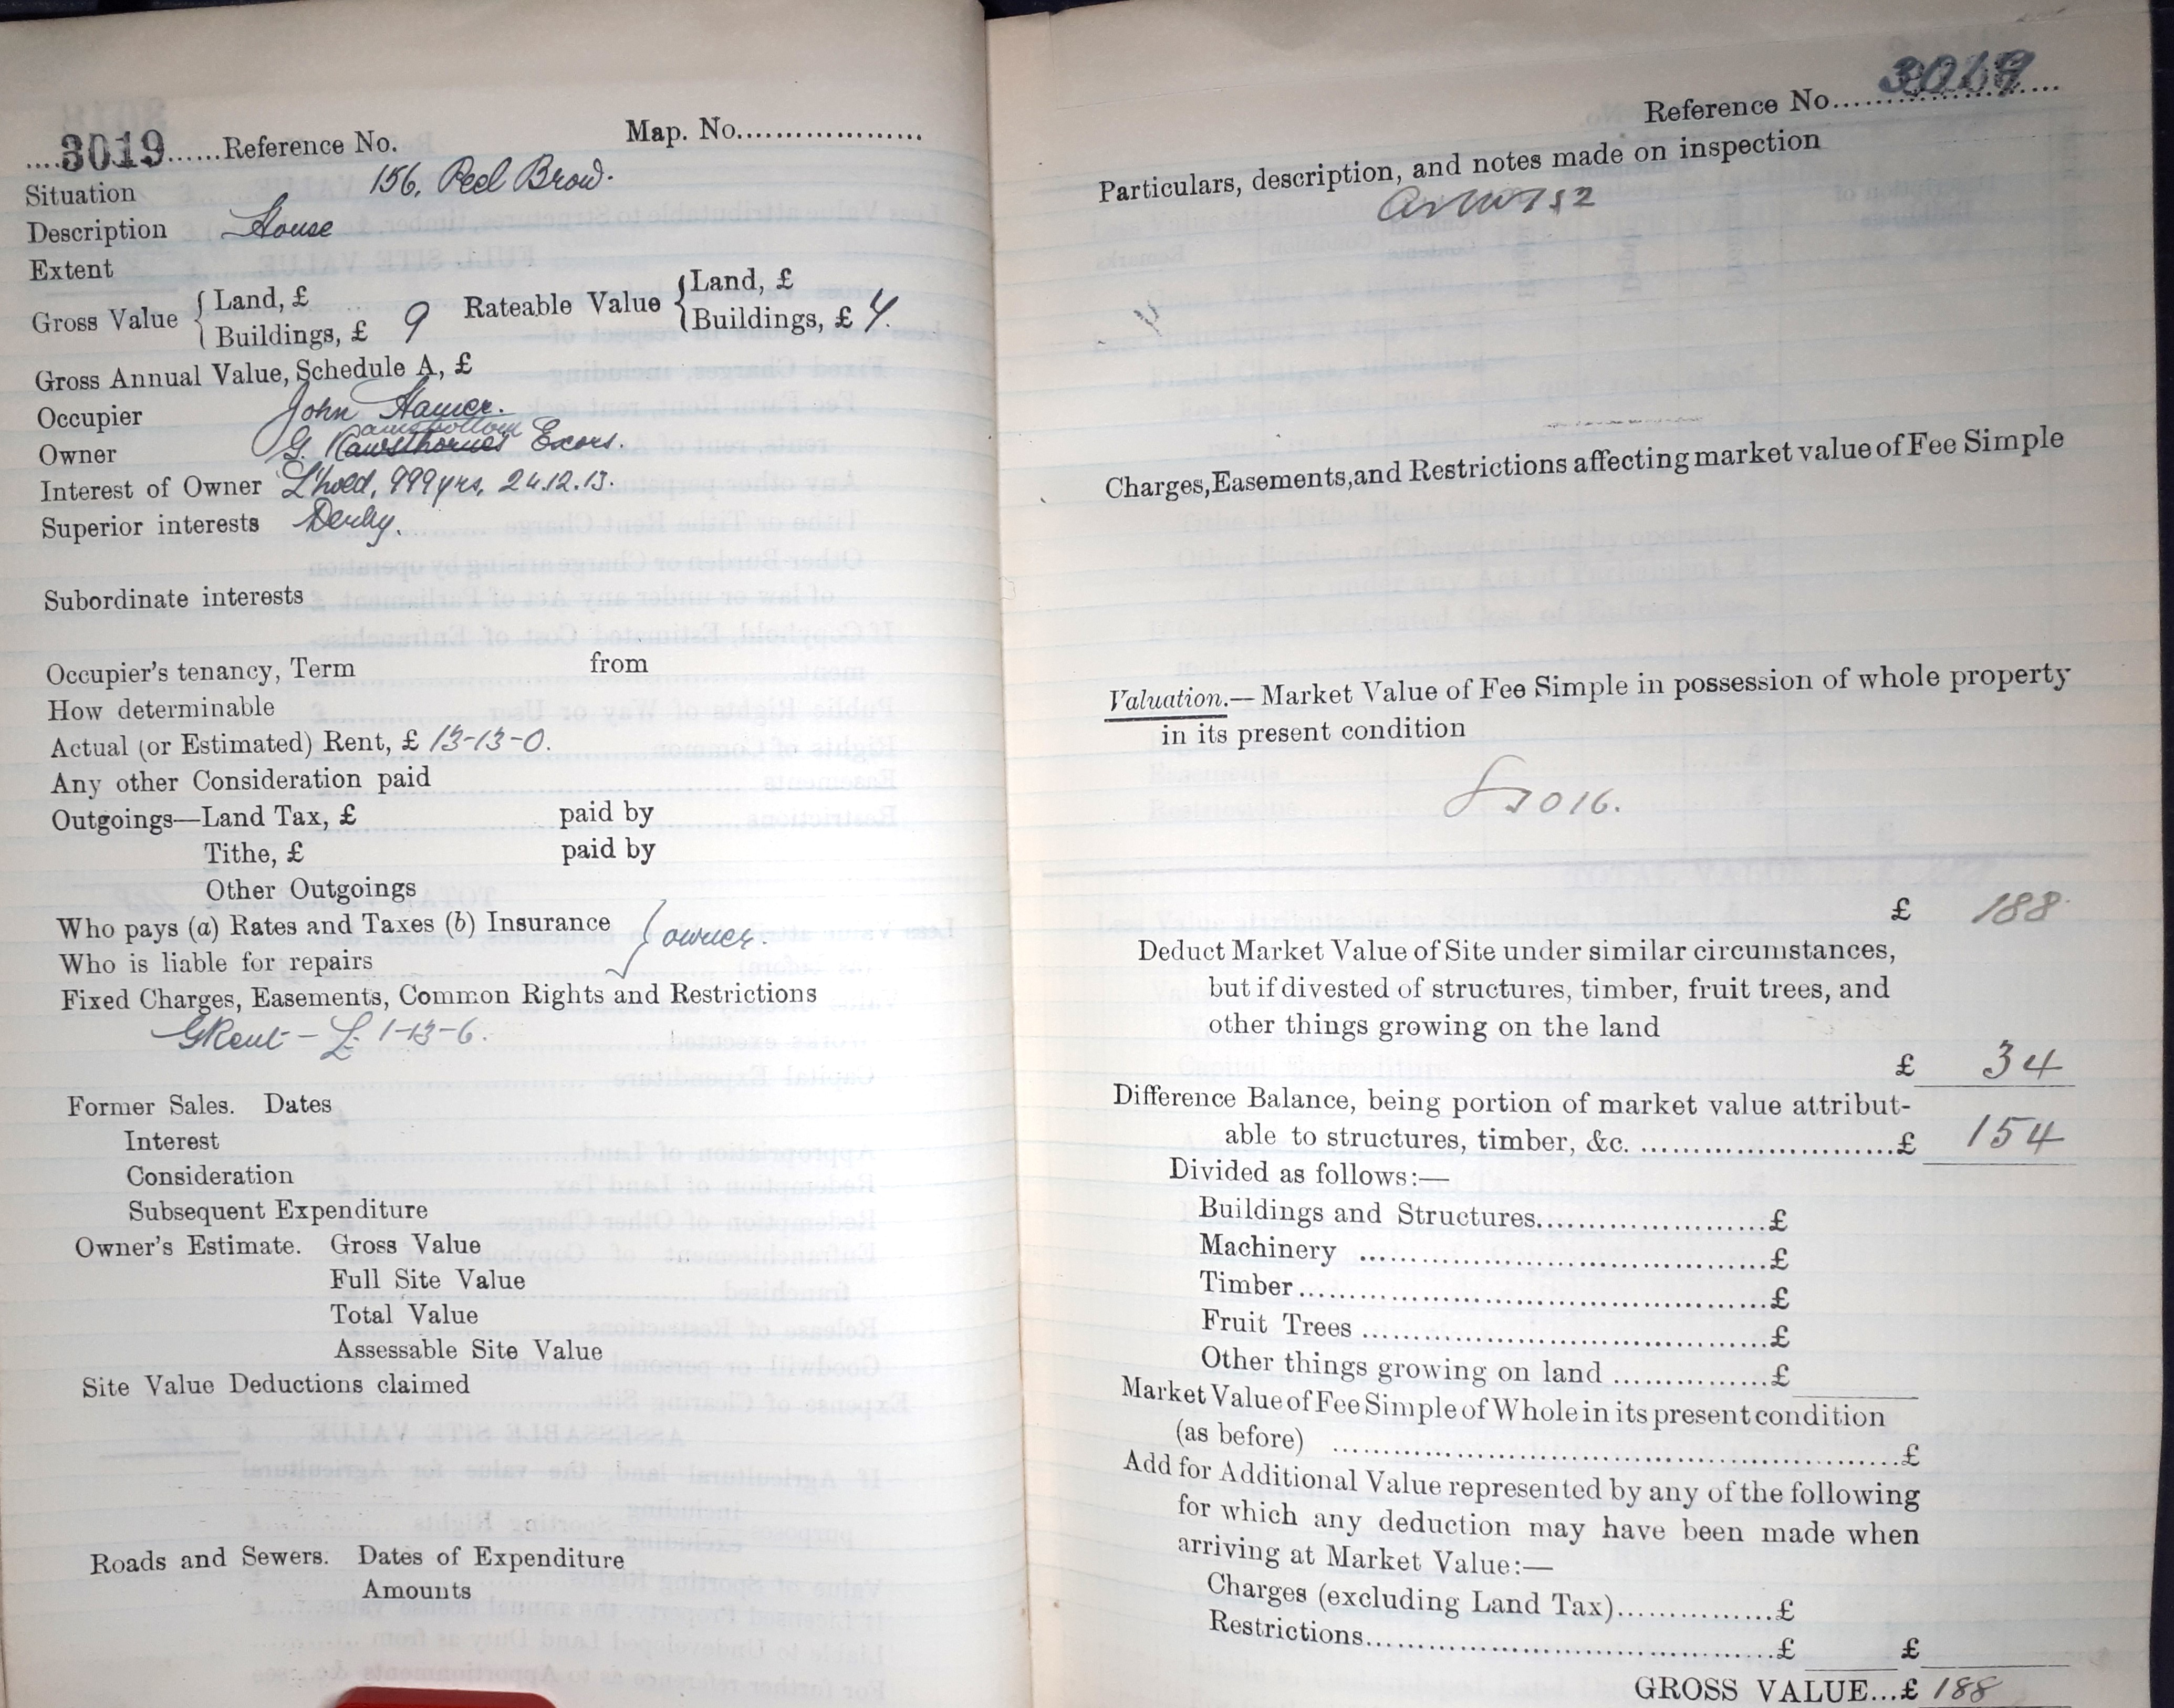 ....3019......Reference No. Map. No...................
Situation 156, Peel Brow.
Description House
Extent
Gross Value { Land, £
Buildings, £ 9 Rateable Value { Land, £
Buildings, £
Gross Annual Value, Schedule A, £
Occupier John Hamer.
Owner G. Rawsthornes Excors.
amsbottom
Interest of Owner L'hold, 999 yrs, 24.12.13.
Superior interests Derby.
Subordinate interests
Occupier's tenancy, Term from
How determinable
Actual (or Estimated) Rent, £ 13-13-0.
Any other Consideration paid
Outgoings—Land Tax, £ paid by
Tithe, £ paid by
Other Outgoings
Who pays (a) Rates and Taxes (b) Insurance } owner.
Who is liable for repairs
Fixed Charges, Easements, Common Rights and Restrictions
GRent - £ 1-13-6.
Former Sales. Dates
Interest
Consideration
Subsequent Expenditure
Owner's Estimate. Gross Value
Full Site Value
Total Value
Assessable Site Value
Site Value Deductions claimed
Roads and Sewers. Dates of Expenditure
Amounts
Reference No....3019...
Particulars, description, and notes made on inspection
Charges, Easements, and Restrictions affecting market value of Fee Simple
Valuation.—Market Value of Fee Simple in possession of whole property
in its present condition
£ 188
Deduct Market Value of Site under similar circumstances,
but if divested of structures, timber, fruit trees, and
other things growing on the land
£ 34
Difference Balance, being portion of market value attribut-
able to structures, timber, &c. ...........................£ 154
Divided as follows:—
Buildings and Structures........................£
Machinery ..........................................£
Timber................................................£
Fruit Trees ..........................................£
Other things growing on land ................£
Market Value of Fee Simple of Whole in its present condition
(as before) ............................................................£
Add for Additional Value represented by any of the following
for which any deduction may have been made when
arriving at Market Value:—
Charges (excluding Land Tax)................£
Restrictions..........................................£ £
GROSS VALUE...£ 188